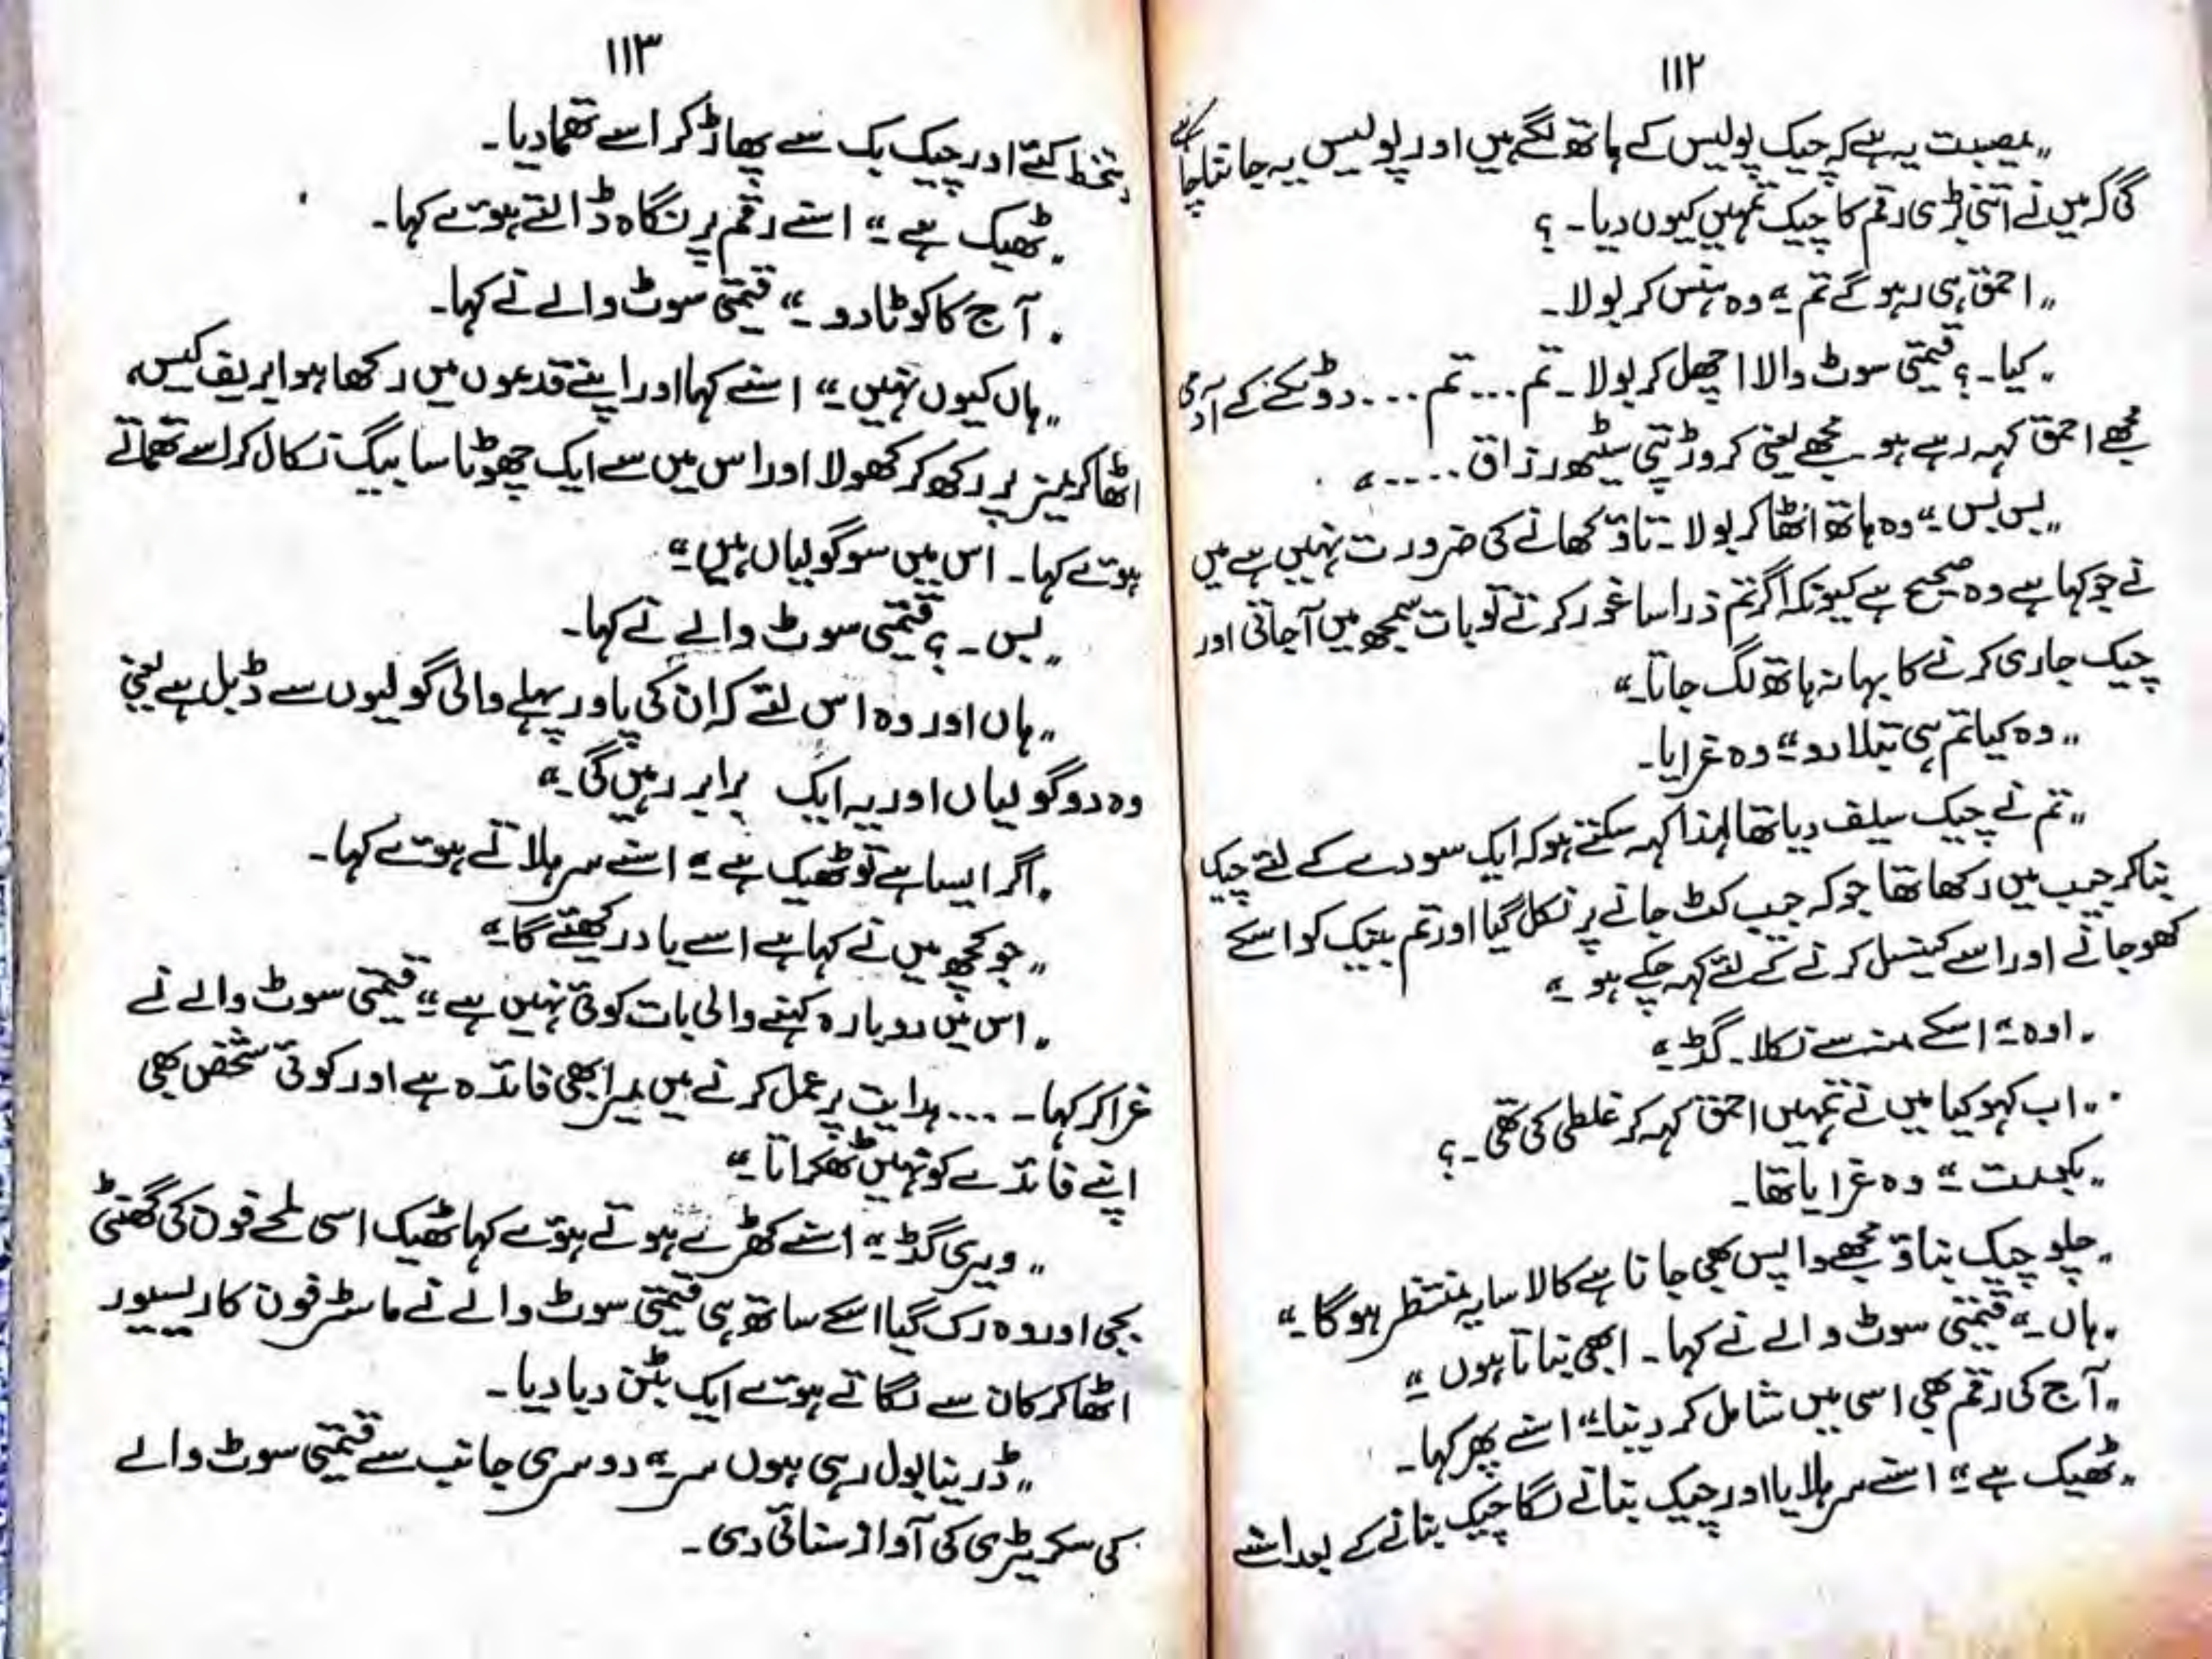 ۱۱۲
„ مصیبت یہ ہے کہ چیک پولیس کے ہاتھ لگے ہیں اور پولیس یہ جاننا چاہے
گی کہ میں نے اتنی بڑی رقم کا چیک تمہیں کیوں دیا۔ ؟
„ احمق ہی رہو گے تم ۔“ وہ ہنس کر بولا۔
„ کیا۔ ؟ قیمتی سوٹ والا اچھل کر بولا۔ تم ... تم ... دو ٹکے کے آدمی
مجھے احمق کہہ رہے ہو مجھے یعنی کروڑ پتی سیٹھ رزاق ....“
„ بس بس ۔“ وہ ہاتھ اٹھا کر بولا۔ تاؤ کھانے کی ضرورت نہیں ہے میں
نے جو کہا ہے وہ صحیح ہے کیونکہ اگر تم ذرا سا غور کرتے تو بات سمجھ میں آجاتی اور
چیک جاری کرنے کا بہانہ ہاتھ لگ جاتا۔“
„ وہ کیا تم ہی بتلا دو ۔“ وہ غرایا۔
„ تم نے چیک سیلف دیا تھا لہذا کہہ سکتے ہو کہ ایک سودے کے لئے چیک
بنا کر جیب میں رکھا تھا جو کہ جیب کٹ جانے پر نکل گیا اور تم بینک کو اسکے
کھو جانے اور اسے کینسل کرنے کے لئے کہہ چکے ہو ۔“
„ اوہ ۔“ اسکے منہ سے نکلا۔ گڈ ۔“
„ اب کہو کیا میں نے تمہیں احمق کہہ کر غلطی کی تھی۔ ؟
„ بکومت ۔“ وہ غرایا تھا۔
„ چلو چیک بناؤ مجھے واپس بھی جانا ہے کالا سایہ منتظر ہوگا ۔“
„ ہاں ۔“ قیمتی سوٹ والے نے کہا۔ ابھی بناتا ہوں ۔“
„ آج کی رقم بھی اسی میں شامل کر دینا ۔“ اسنے پھر کہا۔
„ ٹھیک ہے ۔“ اسنے سر ہلایا اور چیک بنانے لگا چیک بنانے کے بعد اسنے
۱۱۳
دستخط کئے اور چیک بک سے پھاڑ کر اسے تھما دیا۔
„ ٹھیک ہے ۔“ اسنے رقم پر نگاہ ڈالتے ہوئے کہا۔
„ آج کا کوٹا دو ۔“ قیمتی سوٹ والے نے کہا۔
„ ہاں کیوں نہیں ۔“ اسنے کہا اور اپنے قدموں میں رکھا ہوا بریف کیس
اٹھا کر میز پر رکھ کر کھولا اور اس میں سے ایک چھوٹا سا بیگ نکال کر اسے تھماتے
ہوئے کہا۔ اس میں سو گولیاں ہیں ۔“
„ بس۔ ؟ قیمتی سوٹ والے نے کہا۔
„ ہاں اور وہ اس لئے کہ ان کی پاور پہلے والی گولیوں سے ڈبل ہے یعنی
وہ دو گولیاں اور یہ ایک برابر رہیں گی ۔“
„ اگر ایسا ہے تو ٹھیک ہے ۔“ اسنے سر ہلاتے ہوئے کہا۔
„ جو کچھ میں نے کہا ہے اسے یاد رکھئے گا ۔“
„ اس میں دوبارہ کہنے والی بات کوئی نہیں ہے ۔“ قیمتی سوٹ والے نے
غرا کر کہا۔ ... ہدایت پر عمل کرنے میں میرا بھی فائدہ ہے اور کوئی شخص بھی
اپنے فائدے کو نہیں ٹھکراتا ۔“
„ ویری گڈ ۔“ اسنے کھڑے ہوتے ہوئے کہا ٹھیک اسی لمحے فون کی گھنٹی
بجی اور وہ رک گیا اسکے ساتھ ہی قیمتی سوٹ والے نے ماسٹر فون کا ریسیور
اٹھا کر کان سے لگاتے ہوئے ایک بٹن دبا دیا۔
„ ڈرینا بول رہی ہوں سر ۔“ دوسری جانب سے قیمتی سوٹ والے
کی سکریٹری کی آواز سنائی دی۔